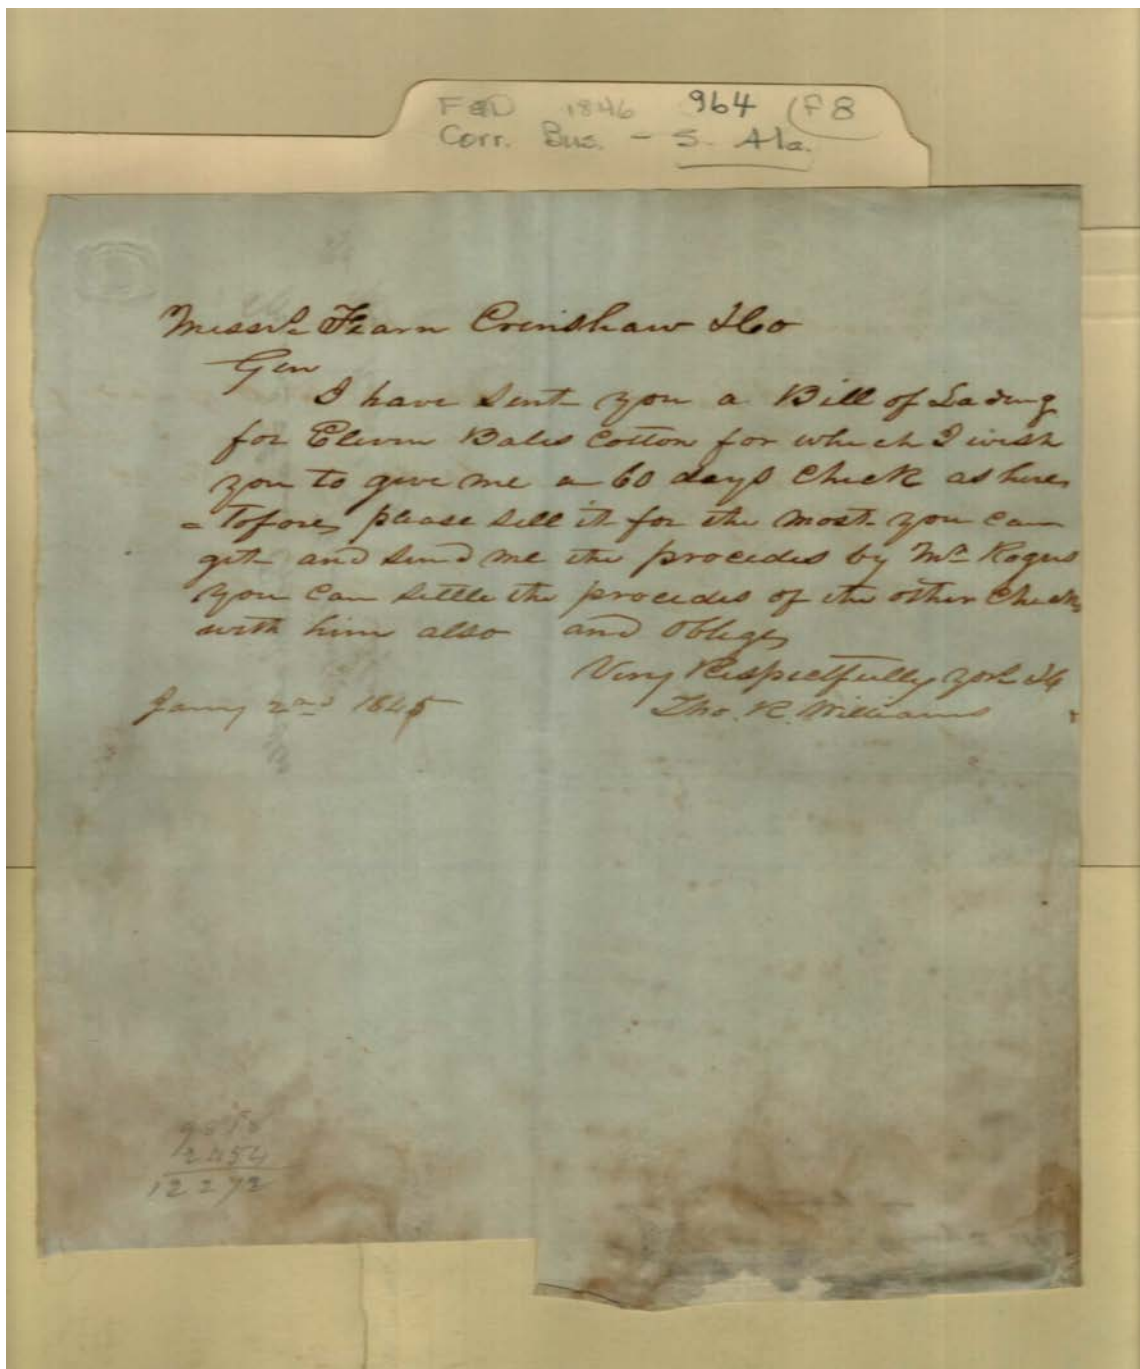 F&D 1846 964 (F8
Corr. Bus. - S. Ala.
Messrs Fearn Crinshaw &Co
Gen
I have sent you a Bill of Lading
for Elevin Bales Cotton for which I wish
you to give me a 60 days Check as here
=tofore, please sell it for the most you can
get and send me the procedes by Mr Rogers
you can settle the procedes of the other Check
with him also and Oblige,
Very Respectfully
Tho. R. Williams
Jany 2nd 1845
9818
2454
12272